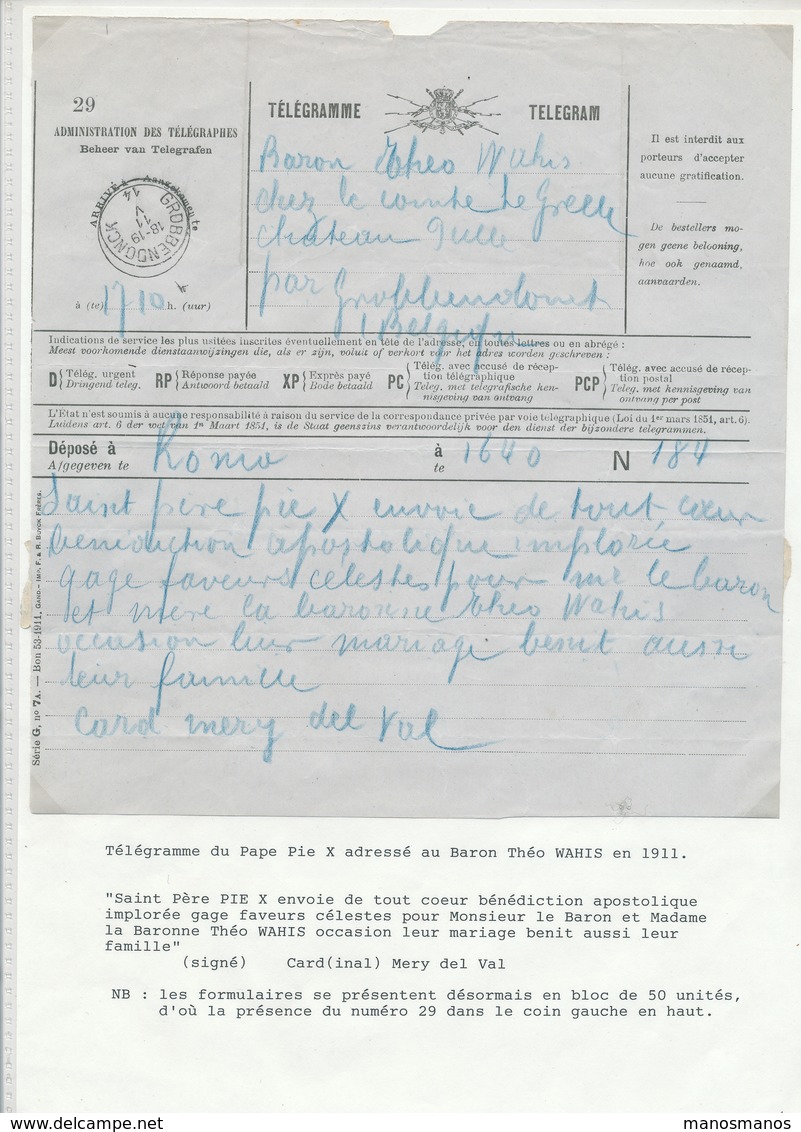 29
ADMINISTRATION DES TÉLÉGRAPHES
Beheer van Telegrafen
ARRIVÉ A Aangekomen te
GROBBENDONCK
18-19
11
V
14
à (te) 1710 h. (uur)
TÉLÉGRAMME TELEGRAM
Baron Theo Wahis
chez le comte de
chateau
par Grobbendonck
Belgique
Il est interdit aux
porteurs d'accepter
aucune gratification.
De bestellers mo-
gen geene belooning,
hoe ook genaamd,
aanvaarden.
Indications de service les plus usitées inscrites éventuellement en tête de l'adresse, en toutes lettres ou en abrégé :
Meest voorkomende dienstaanwijzingen die, als er zijn, voluit of verkort voor het adres worden geschreven :
D Télég. urgent
Dringend teleg.
RP Réponse payée
Antwoord betaald
XP Exprès payé
Bode betaald
PC Télég. avec accusé de récep-
tion télégraphique
Teleg. met telegrafische ken-
nisgeving van ontvang
PCP Télég. avec accusé de récep-
tion postal
Teleg. met kennisgeving van
ontvang per post
L'État n'est soumis à aucune responsabilité à raison du service de la correspondance privée par voie télégraphique (Loi du 1er mars 1851, art. 6).
Luidens art. 6 der wet van 1n Maart 1851, is de Staat geenszins verantwoordelijk voor den dienst der bijzondere telegrammen.
Déposé à Roma à 1640 N 184
A/gegeven te te
Saint pere pie X envoie de tout coeur
benediction apostolique implorée
gage faveurs célestes pour mr le baron
et mère la baronne Theo Wahis
occasion leur mariage benit aussi
leur famille
Card mery del Val
Série G, no 7A. — Bon 53-1911. GAND. - IMP. F. & R. BUYCK FRÈRES.
Télégramme du Pape Pie X adressé au Baron Théo WAHIS en 1911.
"Saint Père PIE X envoie de tout coeur bénédiction apostolique
implorée gage faveurs célestes pour Monsieur le Baron et Madame
la Baronne Théo WAHIS occasion leur mariage benit aussi leur
famille"
(signé) Card(inal) Mery del Val
NB : les formulaires se présentent désormais en bloc de 50 unités,
d'où la présence du numéro 29 dans le coin gauche en haut.
manosmanos